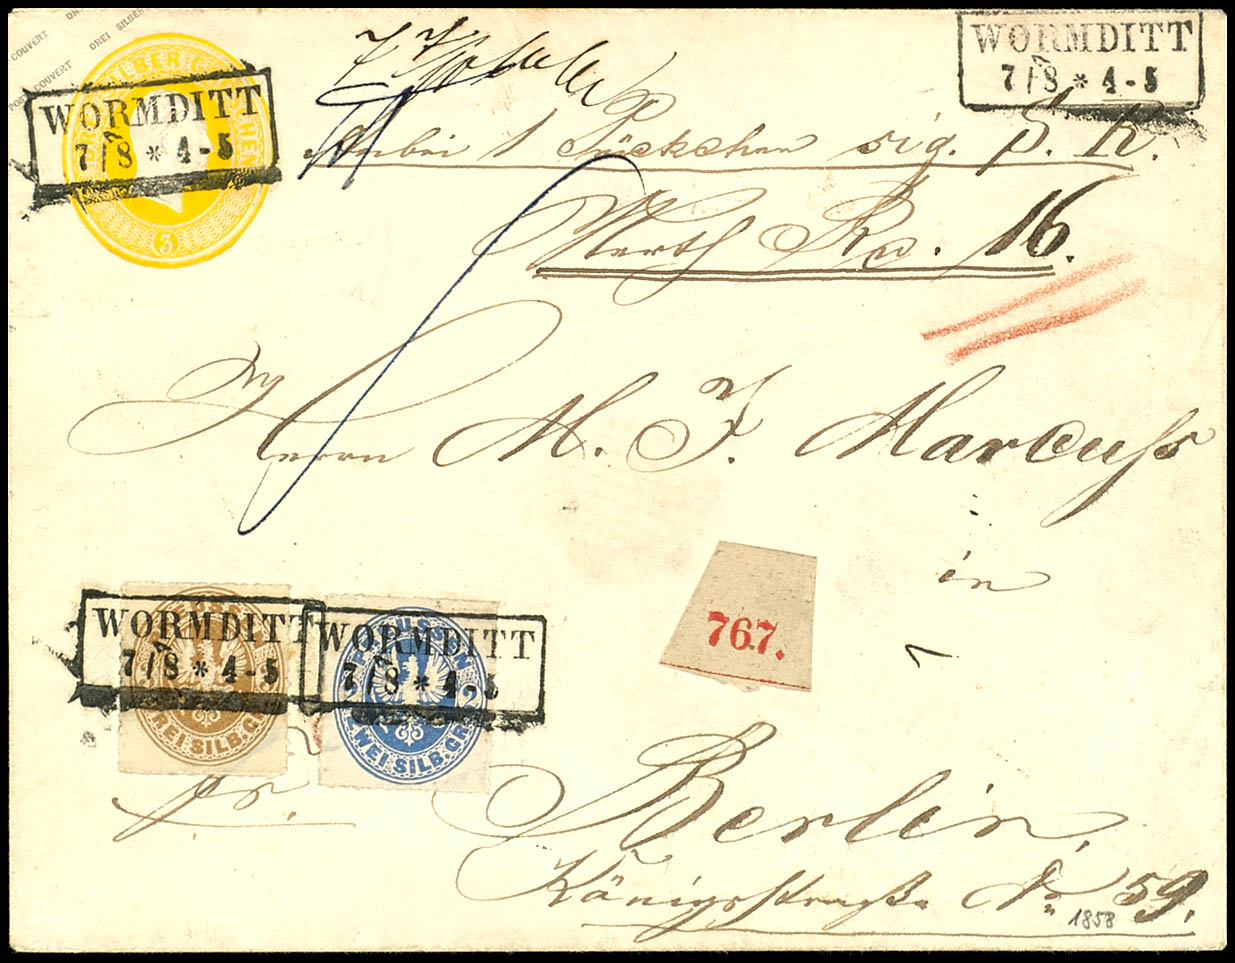 DREI SILBER
COUVERT
POST COUVERT
DREI SILBER GROSCHEN
3
WORMDITT
7/8 * 4-5
WORMDITT
7/8 * 4-5
Anbei 1 Päckchen sig. S. K.
Werth Rh. 16.
Herrn M. J. Marcuss
in
767.
WORMDITT
7/8 * 4-5
PREUSSEN
3
DREI SILB. GR.
WORMDITT
7/8 * 4-5
PREUSSEN
2 2
ZWEI SILB. GR.
fr.
Berlin,
Königsstraße No 59.
1858